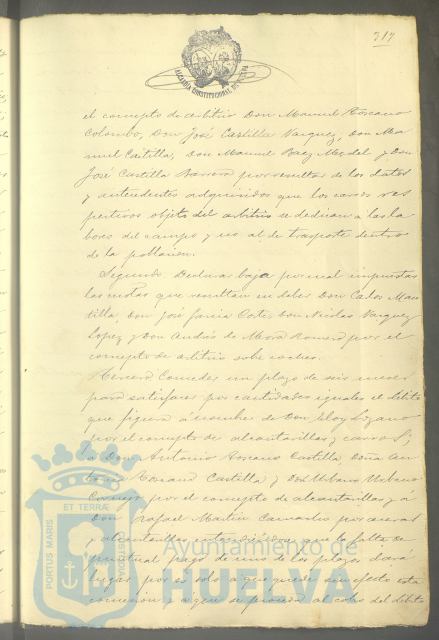 317
ALCALDIA CONSTITUCIONAL DE HUELVA
el concepto de arbitrio Don Manuel Toscano
Colombo, Don José Castilla Vazquez, Don Ma
nuel Castilla, Don Manuel Baez Medel y Don
José Castilla Navarro por resultar de los datos
y antecedentes adquiridos que los carros res
pectivos objeto del arbitrio se dedican a las la
bores del campo y no al de trasporte dentro
de la poblacion.
Segundo Declarar baja por mal impuestas
las cuotas que resultan en deber Don Carlos Man
silla, Don José Garcia Coto, Don Nicolas Vazquez
Lopez y Don Andrés de Mora Romero por el
concepto de arbitrio sobre coches.
Tercero Conceder un plazo de seis meses
para satisfacer por cantidades iguales el débito
que figura á nombre de Don Eloy Lozano
por el concepto de alcantarillas y carros,
a Don Antonio Toscano Castilla, Doña An
Toscano Castilla y Don Urbano
Cornejo por el concepto de alcantarillas y á
Don Rafael Martin por aceras
y alcantarillas entendiéndose que la falta de
puntual pago de uno de los plazos dará
lugar por si solo a que quede sin efecto esta
concesion y a que se proceda al cobro del débito
PORTUS MARIS
ET TERRÆ
CUSTODIA
Ayuntamiento de
HUELVA